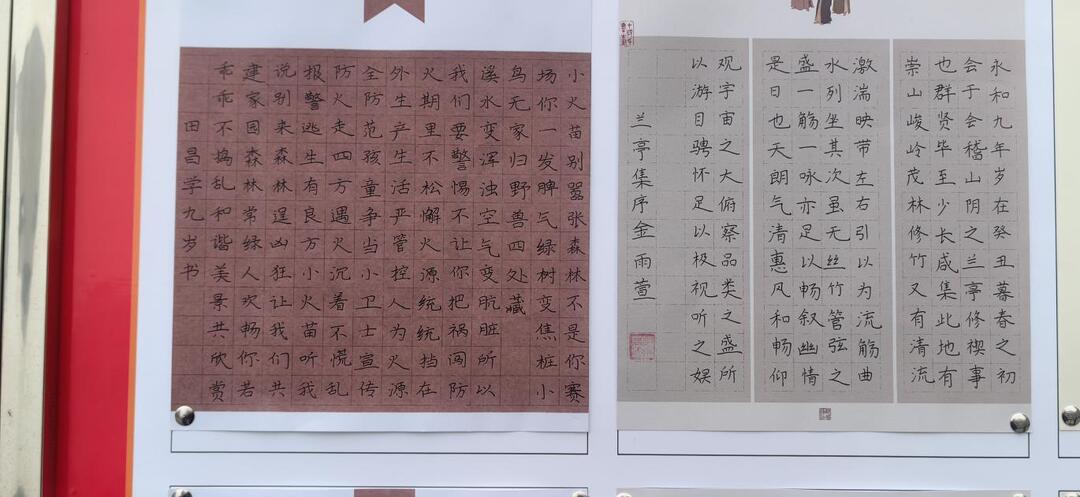 小火苗别嚣张森林不是你赛
场你一发脾气绿树变焦桩小
鸟无家归野兽四处藏
溪水变浑浊空气变肮脏所以
我们要警惕不让你把祸闯防
火期里不松懈火源统统挡在
外生产生活严管控人为火源
全防范孩童争当小卫士宣传
防火走四方遇火沉着不慌乱
报警逃生有良方小火苗听我
说别来森林逞凶狂让我们共
建家园森林常绿人欢畅你若
乖乖不捣乱和谐美景共欣赏
田昌学九岁书
永和九年岁在癸丑暮春之初
会于会稽山阴之兰亭修禊事
也群贤毕至少长咸集此地有
崇山峻岭茂林修竹又有清流
激湍映带左右引以为流觞曲
水列坐其次虽无丝竹管弦之
盛一觞一咏亦足以畅叙幽情
是日也天朗气清惠风和畅仰
观宇宙之大俯察品类之盛所
以游目骋怀足以极视听之娱
兰亭集序金雨萱